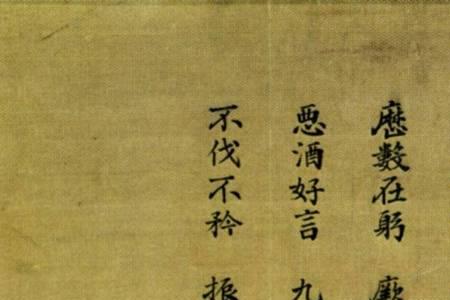 歷數在躬 厥
惡酒好言 九
不伐不矜 振